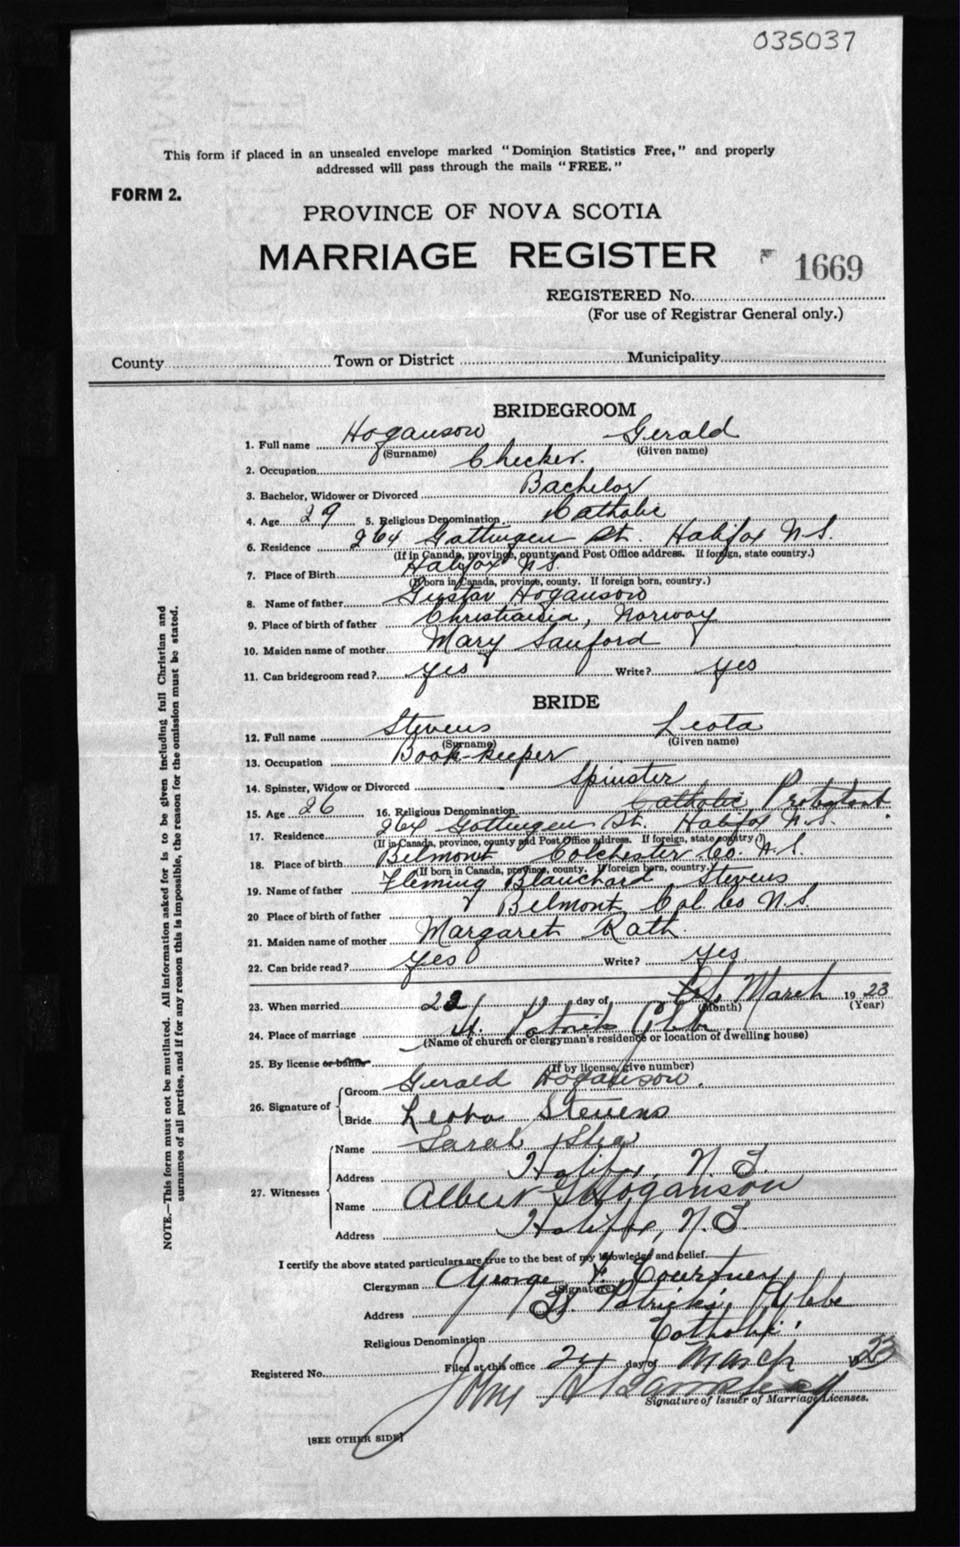 035037
This form if placed in an unsealed envelope marked "Dominion Statistics Free," and properly
addressed will pass through the mails "FREE."
FORM 2.
PROVINCE OF NOVA SCOTIA
MARRIAGE REGISTER
1669
REGISTERED No.
(For use of Registrar General only.)
County Town or District Municipality
BRIDEGROOM
1. Full name Hoganson Gerald
(Surname) (Given name)
2. Occupation Checker.
3. Bachelor, Widower or Divorced Bachelor
4. Age 29 5. Religious Denomination Catholic
6. Residence 264 Gottingen St. Halifax N.S.
(If in Canada, province, county and Post Office address. If foreign, state country.)
7. Place of Birth Halifax N.S.
(If born in Canada, province, county. If foreign born, country.)
8. Name of father Gustav Hoganson
9. Place of birth of father Christiania, Norway
10. Maiden name of mother Mary Sanford
11. Can bridegroom read? yes Write? yes
BRIDE
12. Full name Stevens Leota
(Surname) (Given name)
13. Occupation Book-keeper
14. Spinster, Widow or Divorced Spinster
15. Age 26 16. Religious Denomination Catholic Protestant
17. Residence 264 Gottingen St. Halifax N.S.
(If in Canada, province, county and Post Office address. If foreign, state country.)
18. Place of birth Belmont Colchester Co. N.S.
(If born in Canada, province, county. If foreign born, country.)
19. Name of father Fleming Blanchard Stevens
20 Place of birth of father Belmont Col. Co N.S.
21. Maiden name of mother Margaret Rath
22. Can bride read? yes Write? yes
23. When married 22 day of March 1923
(Month) (Year)
24. Place of marriage St. Patricks Glebe
(Name of church or clergyman's residence or location of dwelling house)
25. By license or banns
(If by license, give number)
26. Signature of Groom Gerald Hoganson.
Bride Leota Stevens
27. Witnesses Name Sarah Shea
Address Halifax, N.S.
Name Albert G Hoganson
Address Halifax, N.S.
I certify the above stated particulars are true to the best of my knowledge and belief.
Clergyman George F. Courtney
(Signature)
Address St. Patrick's Glebe
Religious Denomination Catholic
Registered No. Filed at this office 24 day of March 1923
John
Signature of Issuer of Marriage Licenses.
[SEE OTHER SIDE]
NOTE.—This form must not be mutilated. All information asked for is to be given including full Christian and
surnames of all parties, and if for any reason this is impossible, the reason for the omission must be stated.